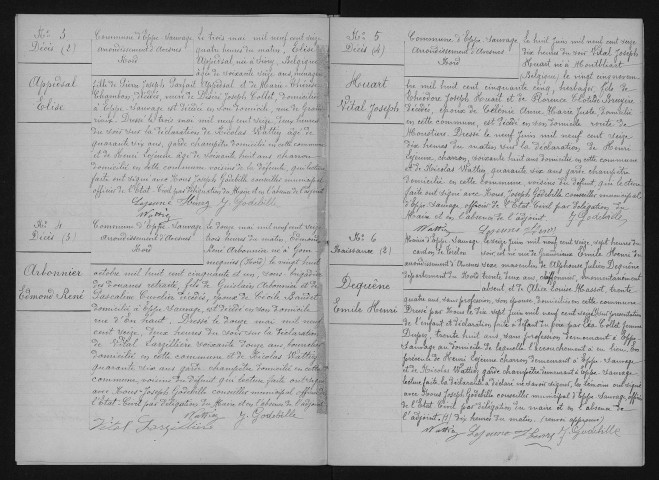 No 3
Décès (2)
Appésal
Elise
Commune d'Eppe Sauvage
arrondissement d'Avesnes
Nord
Le trois mai mil neuf cent seize
quatre heures du matin, Elise
Appésal née à Virey, Belgique
âgée de soixante seize ans, ménagère
fille de Pierre Joseph Parfait Appésal et de Marie Thérèse
domiciliée
à Eppe Sauvage est décédée en son domicile
Dressé le trois mai mil neuf cent seize, deux heures
du soir sur la déclaration de Nicolas Wattiez âgé de
quarante six ans, garde champêtre domicilié en cette commune
et de Henri Lejeune âgé de soixante huit ans charron
domicilié en cette commune, voisins de la défunte, qui lecture
faite ont signé avec Nous Joseph Godebille conseiller municipal
officier de l'Etat Civil par délégation du Maire et en l'absence de l'adjoint
Lejeune Henry J. Godebille
Wattiez
No 4
Décès (3)
Arbonnier
Edmond René
Commune d'Eppe Sauvage
Arrondissement d'Avesnes
Nord
Le douze mai mil neuf cent seize
trois heures du matin, Edmond
René Arbonnier né à
(Nord) le vingt huit
octobre mil huit cent cinquante et un, sous brigadier
des douanes retraité, fils de Ghislain Arbonnier et de
Pascaline Cuvelier décédés, époux de Cécile Baudet
domicilié à Eppe Sauvage, est décédé en son domicile
rue d'En Haut. Dressé le douze mai mil neuf
cent seize, deux heures du soir sur la déclaration
de Vital Sarzillière soixante douze ans,
domicilié en cette commune et de Nicolas Wattiez
quarante six ans garde champêtre domicilié en cette
commune, voisins du défunt qui lecture faite ont signé
avec Nous Joseph Godebille conseiller municipal officier de
l'Etat Civil par délégation du Maire et en l'absence de l'adjoint
Wattiez J. Godebille
Vital Sarzillière
No 5
Décès (4)
Houart
Vital Joseph
Commune d'Eppe Sauvage
Arrondissement d'Avesnes
Nord
Le huit juin mil neuf cent seize
dix heures du soir Vital Joseph
Houart né à Montbliart
(Belgique), le vingt cinq
mil huit cent cinquante cinq, herbager fils de
Théodore Joseph Houart et de Florence Clotilde Bruyère
décédés, époux de Célénie Anne Marie Juste, domicilié
en cette commune, est décédé en son domicile route de
Moustier. Dressé le neuf juin mil neuf cent seize
dix heures du matin sur la déclaration de Henri
Lejeune charron, soixante huit ans domicilié en cette commune
et de Nicolas Wattiez quarante six ans garde champêtre
domicilié en cette commune, voisins du défunt qui lecture
faite ont signé avec Nous Joseph Godebille conseiller municipal
d'Eppe Sauvage, officier de l'Etat Civil par délégation du
Maire et en l'absence de l'adjoint J. Godebille
Wattiez Lejeune Henry
No 6
Naissance (2)
Dequène
Emile Henri
Mairie d'Eppe Sauvage
Le seize juin mil neuf cent seize, sept heures du
soir est né Emile Henri du
sexe masculin de Alphonse Julien Dequène
département du Nord trente deux ans, momentanément
absent et de Alice Louise Massot, trente
quatre ans, sans profession, son épouse, domiciliés en cette commune
Dressé par Nous le dix sept juin mil neuf cent seize sur présentation
de l'enfant et déclaration faite à défaut du père par Léa Collet femme
Dupez, trente huit ans, sans profession demeurant à Eppe
Sauvage au domicile de laquelle l'accouchement a eu lieu. En
présence de Henri Lejeune charron demeurant à Eppe Sauvage
et de Nicolas Wattiez garde champêtre demeurant à Eppe Sauvage
Lecture faite la déclarante a déclaré ne savoir signer, les témoins ont signé
avec Nous Joseph Godebille conseiller municipal d'Eppe Sauvage, officier
de l'Etat Civil par délégation du maire et en l'absence de
l'adjoint, dix heures du matin. (renvoi approuvé)
Wattiez Lejeune Henry J. Godebille